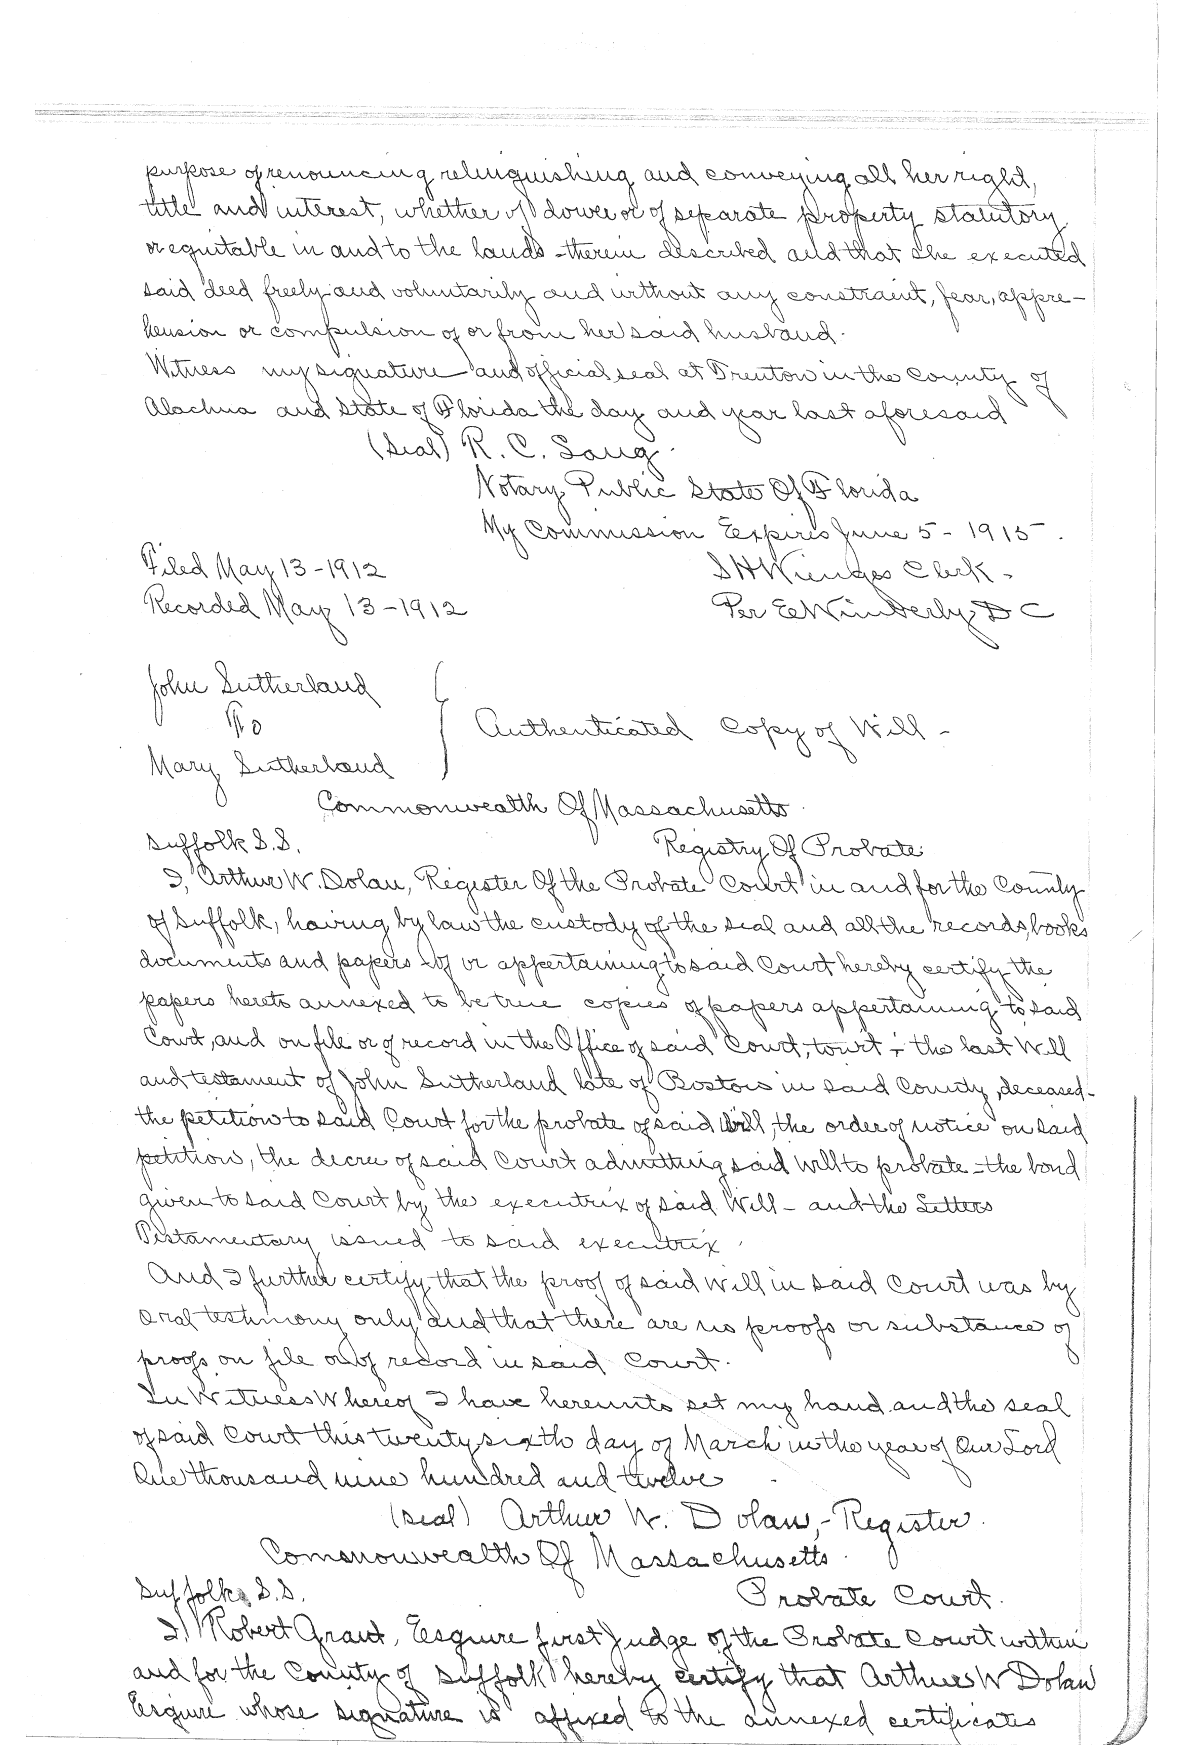 purpose of renouncing relinquishing and conveying all her right,
title and interest, whether of dower or of separate property statutory
or equitable in and to the lands therein described and that she executed
said deed freely and voluntarily and without any constraint, fear, appre-
hension or compulsion of or from her said husband.
Witness my signature and official seal at Trenton in the County of
Alachua and State of Florida the day and year last aforesaid
(Seal) R. C.
Notary Public State Of Florida
My Commission Expires June 5 - 1915.
Filed May 13 - 1912
S H Wienges Clerk -
Recorded May 13 - 1912
Per E Wimberly D C
John Sutherland
To
Authenticated Copy of Will -
Mary Sutherland
Commonwealth Of Massachusetts.
Suffolk S.S.
Registry Of Probate
I, Arthur W. Dolan, Register Of the Probate Court in and for the County
of Suffolk, having by law the custody of the seal and all the records, books
documents and papers of or appertaining to said Court hereby certify the
papers hereto annexed to be true copies of papers appertaining to said
Court, and on file or of record in the Office of said Court, towit - the last Will
and testament of John Sutherland late of Boston in said County, deceased -
the petition to said Court for the probate of said Will, the order of notice on said
petition, the decree of said Court admitting said Will to probate - the bond
given to said Court by the executrix of said Will - and the Letters
Testamentary issued to said executrix.
And I further certify that the proof of said Will in said Court was by
oral testimony only and that there are no proofs or substance of
proofs on file or of record in said Court.
In Witness Whereof I have hereunto set my hand and the seal
of said Court this twenty sixth day of March in the year of Our Lord
One thousand nine hundred and twelve
(seal) Arthur W. Dolan, - Register.
Commonwealth Of Massachusetts.
Suffolk S.S.
Probate Court.
I, Robert Grant, Esquire first Judge of the Probate Court within
and for the County of Suffolk hereby certify that Arthur W Dolan
Esquire whose signature is affixed to the annexed certificates